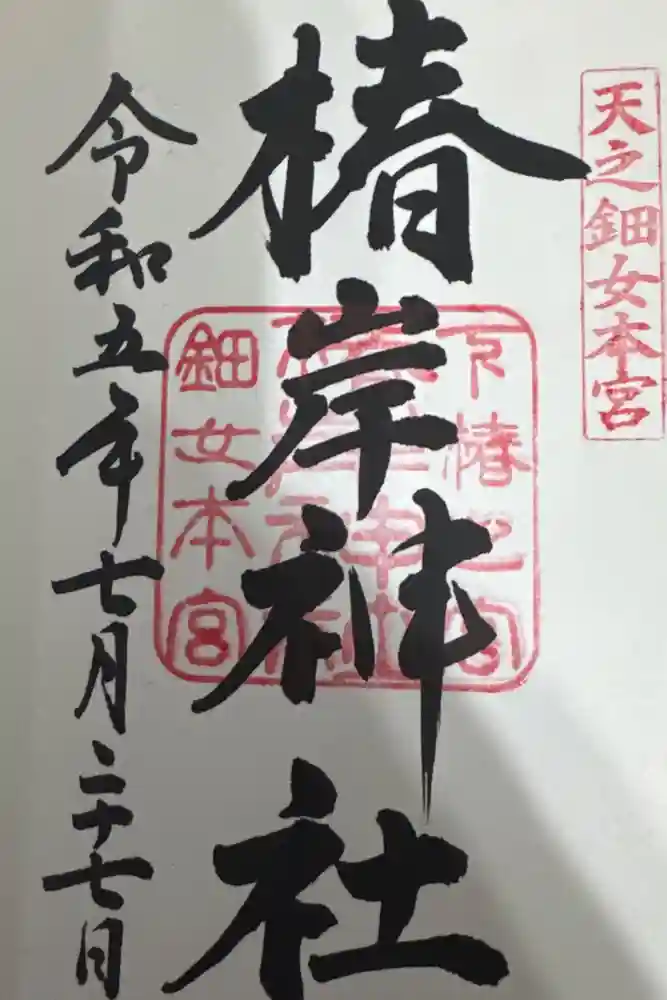 天之鈿女本宮
椿岸神社
下椿之宮
鈿女本宮
令和五年七月二十七日